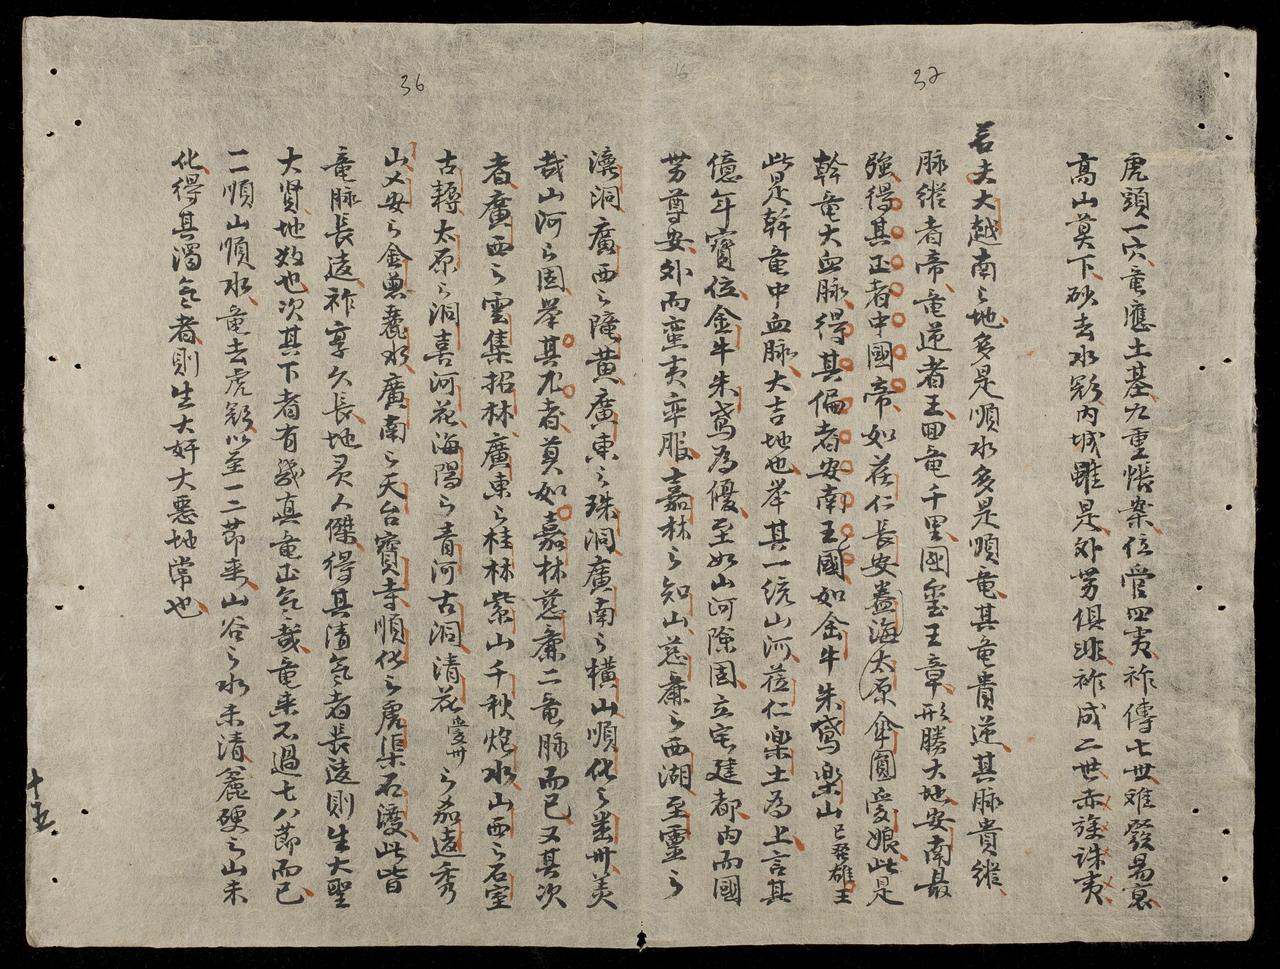 37
虎頭一穴竜應土基九重悵案位管四夷祚傳七世难發易衰
高山莫下砂去水㱕内城雖是外勞俱非祚成二世赤族誅夷
若夫大越南之地多是順水多是順竜其竜貴逆其脉貴縱
脉縱者帝竜逆者王回竜千里国璽王章形勝大地安南最
強得其正者中國帝如莅仁長安蓋海太原傘圓愛娘此是
幹竜大血脉得其偏者安南王國如金牛朱鳶樂山已發雄王
此是幹竜中血脉大吉地也举其一統山河莅仁樂土為上言其
億年寳位金牛朱鳶為優至如山河險固立宅建都内而國
勢尊安外而蛮夷率服嘉林之知山慈廉之西湖至靈之
16
36
漨洞廣西之隴黄廣東之珠洞廣南之横山順化之愛卅美
哉山河之固举其尤者莫如嘉林慈廉二竜脉而已又其次
者廣西之雲集招林廣東之桂林紫山千秋炮水山西之石室
古轉太原之洞喜河花海陽之青河古洞清花愛卅之茄遠秀
山乂安之金甑麁水廣南之天台寳寺順化之虎渠石渡此皆
竜脉長遠祚享久長地灵人傑得其清氣者長遠則生大聖
大賢地故也次其下者有幾真竜正气哉竜来不過七八莭而已
二順山順水竜去虎㱕以至一二莭来山谷之水未清麁硬之山未
化得其濁气者則生大奸大惡地常也
十五